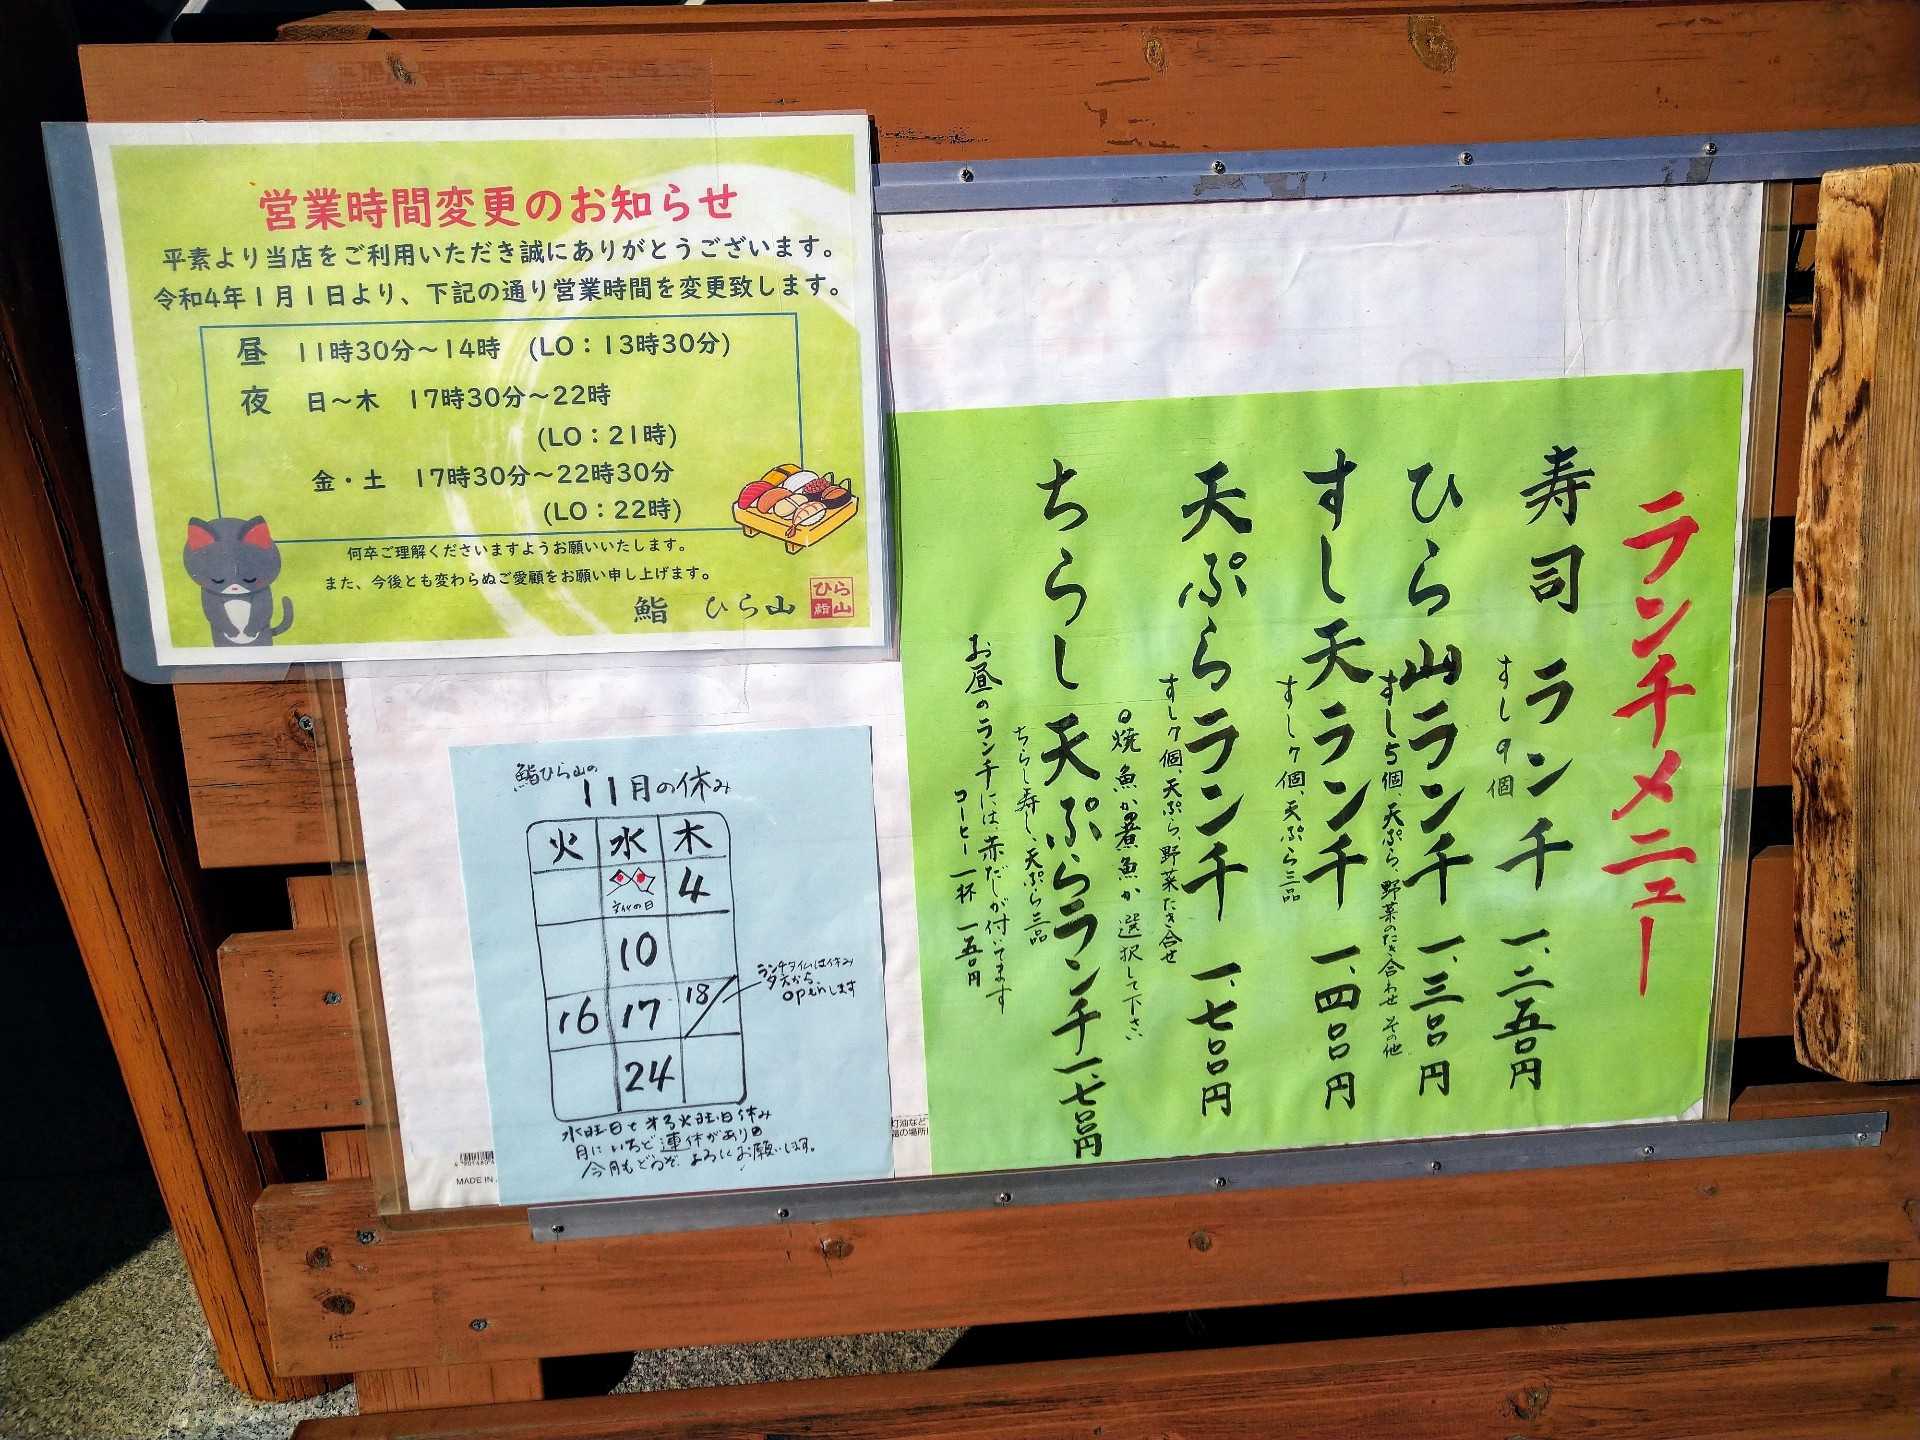 営業時間変更のお知らせ
平素より当店をご利用いただき誠にありがとうございます。
令和4年1月1日より、下記の通り営業時間を変更致します。
昼 11時30分～14時 (LO：13時30分)
夜 日～木 17時30分～22時
(LO：21時)
金・土 17時30分～22時30分
(LO：22時)
何卒ご理解くださいますようお願いいたします。
また、今後とも変わらぬご愛顧をお願い申し上げます。
鮨 ひら山
ひら山
鮨
鮨ひら山の
11月の休み
火 水 木
文化の日 4
10
16 17 18
24
ランチタイムは休み
夕方から
openします
水曜日と第3火曜日休み
月にいちど連休があり
今月もどうぞ、よろしくお願いします。
MADE IN
灯油など
ランチメニュー
寿司ランチ 一、二五〇円
すし9個
ひら山ランチ 一、三〇〇円
すし5個、天ぷら、野菜のたき合わせ その他
すし天ランチ 一、四〇〇円
すし7個、天ぷら三品
天ぷらランチ 一、七〇〇円
すし7個、天ぷら、野菜たき合せ
○焼魚か煮魚か選択して下さい
ちらし天ぷらランチ 一、七〇〇円
ちらし寿し、天ぷら三品
お昼のランチには、赤だしが付いてます
コーヒー一杯 一五〇円